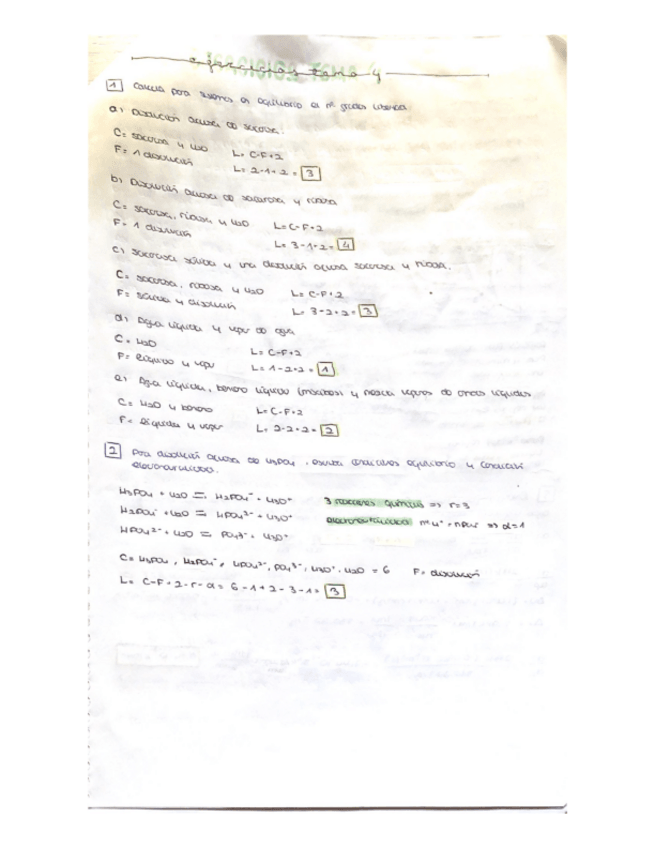 ejercicios tema 4
1 Calcula para sistemas en equilibrio el nº grados libertad.
a) Disolución acuosa de sacarosa.
C= sacarosa y H2O
F= 1 disolución L= C-F+2
L= 2-1+2 = 3
b) Disolución acuosa de sacarosa y ribosa
C= sacarosa, ribosa y H2O
F= 1 disolución L= C-F+2
L= 3-1+2= 4
c) Sacarosa sólida y una disolución acuosa sacarosa y ribosa.
C= sacarosa, ribosa y H2O L= C-F+2
F= sólida y disolución L= 3-2+2= 3
d) Agua líquida y vapor de agua
C= H2O L= C-F+2
F= líquido y vapor L= 1-2+2= 1
e) Agua líquida, benceno líquido y mezcla vapores de líquidos
C= H2O y benceno L= C-F+2
F= líquidos y vapor 2
2 Para disolución acuosa de H3PO4, escribe equilibrio y condición
electroneutralidad.
H3PO4 + H2O ⇌ H2PO4⁻ + H3O⁺ 3 reacciones químicas ⇒ r=3
H2PO4⁻ + H2O ⇌ HPO4²⁻ + H3O⁺ electroneutralidad ⇒ a=1
HPO4²⁻ + H2O ⇌ PO4³⁻ + H3O⁺
C= H3PO4, H2PO4⁻, HPO4²⁻, PO4³⁻, H3O⁺, H2O = 6 F= disolución
L= C-F+2-r-a = 6-1+2-3-1= 3